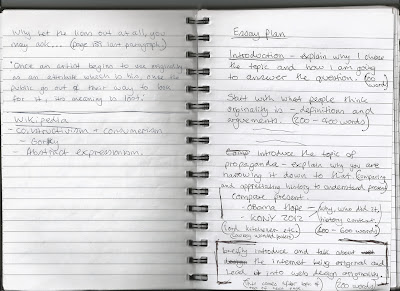 Why let the lions out at all, you
may ask... (page 188 last paragraph)
"Once an artist begins to use originality
as an attribute which is his, once the
public go out of their way to look
for it, its meaning is lost."
Wikipedia
- constructivism + consumerism
- Gorky
- Abstract expressionism.
Essay plan
Introduction - explain why I chose
the topic and how I am going
to answer the question. (100
words)
Start with what people think
originality is - definitions and
arguements. (200 - 400 words)
introduce the topic of
propaganda - explain why you are
narrowing it down to that (comparing
and appreciating history to understand present)
Compare present
- Obama Hope
- KONY 2012
why, who did it,
history context,
(lord kitchener etc.)
(400 - 600 words)
briefly introduce and talk about
the internet being original and
lead it into web design originality.
(this comes after
(200 words)